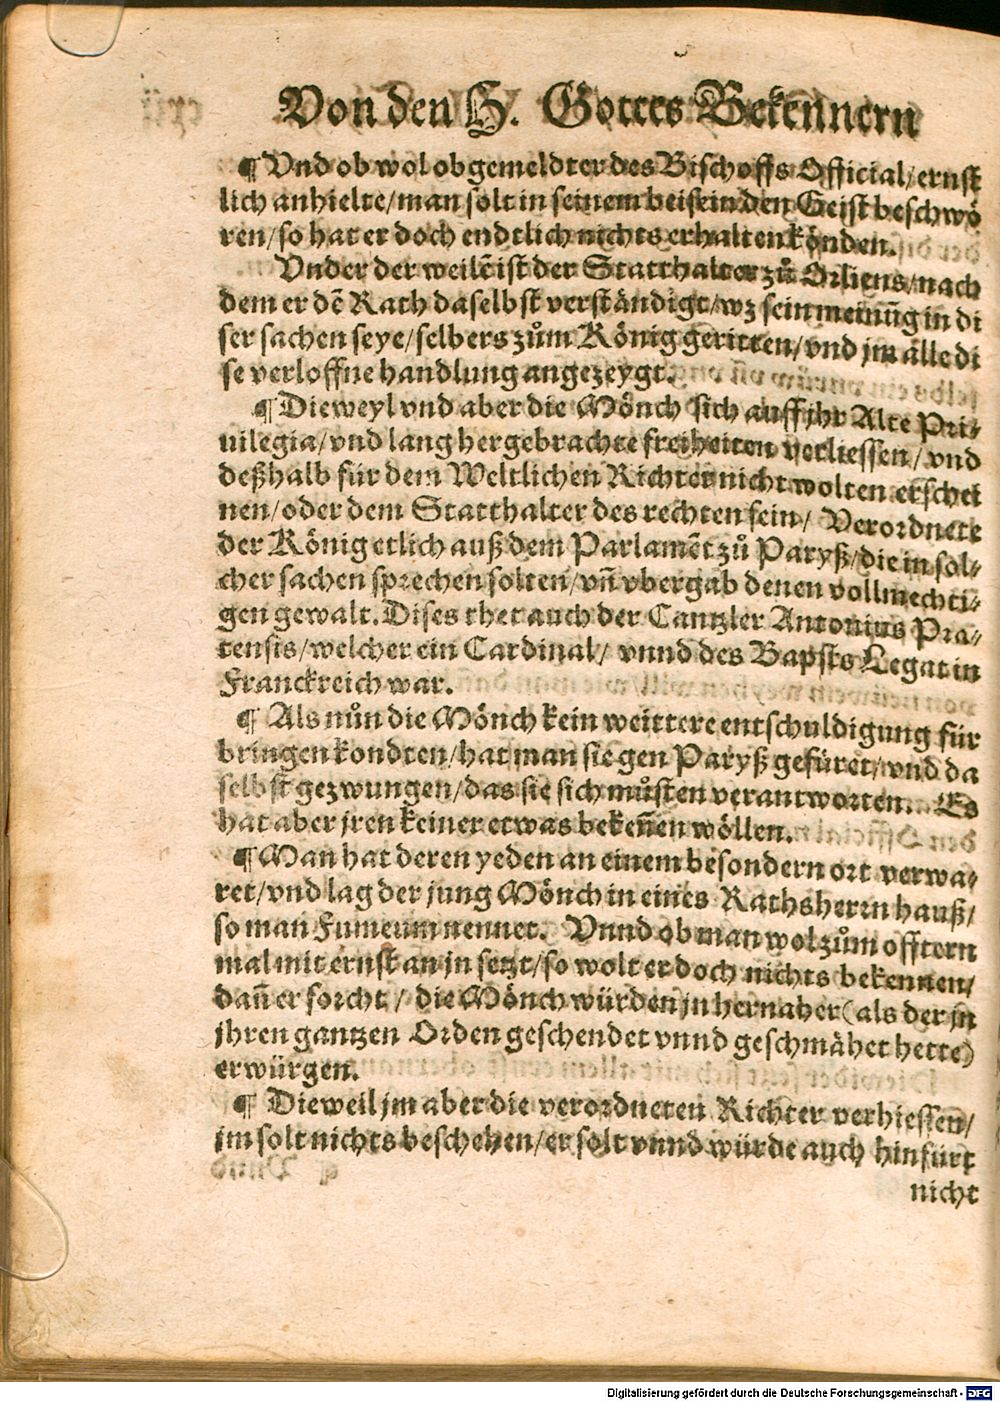 Von den H. Gottes Bekennern
¶ Vnd ob wol obgemeldter des Bischoffs Official/ ernst
lich anhielte/ man solt in seinem beisein den Geist beschwö
ren/ so hat er doch endtlich nichts erhalten könden.
Vnder der weilẽ ist der Statthalter zů Orliens/ nach
dem er dẽ Rath daselbst verständigt/ wz sein meinũg in di
ser sachen seye/ selbers zům König geritten/ vnd jm alle di
se verloffne handlung angezeygt.
¶ Dieweyl vnd aber die Mönch sich auff jhr Alte Pri-
uilegia/ vnd lang hergebrachte freiheiten verliessen/ vnd
deßhalb für dem Weltlichen Richter nicht wolten erschei
nen/ oder dem Statthalter des rechten sein/ Verordnete
der König etlich auß dem Parlamẽt zů Paryß/ die in sol-
cher sachen sprechen solten/ vñ vbergab denen vollmechti-
gen gewalt. Dises thet auch der Cantzler Antonius Pra-
tensis/ welcher ein Cardinal/ vnnd des Bapsts Legat in
Franckreich war.
¶ Als nůn die Mönch kein weittere entschuldigung für
bringen kondten/ hat man sie gen Paryß gefüret/ vnd da
selbst gezwungen/ das sie sich můsten verantworten. Es
hat aber jren keiner etwas bekeñen wöllen.
¶ Man hat deren yeden an einem besondern ort verwa-
ret/ vnd lag der jung Mönch in eines Rathsherrn hauß/
so man Fumeum nennet. Vnnd ob man wol zům offtern
mal mit ernst an jn setzt/ so wolt er doch nichts bekennen/
dañ er forcht/ die Mönch würden jn hernaher (als der jn
jhren gantzen Orden geschendet vnnd geschmähet hette)
erwürgen.
¶ Dieweil jm aber die verordneten Richter verhiessen/
jm solt nichts beschehen/ er solt vnnd würde auch hinfürt
nicht
Digitalisierung gefördert durch die Deutsche Forschungsgemeinschaft - DFG